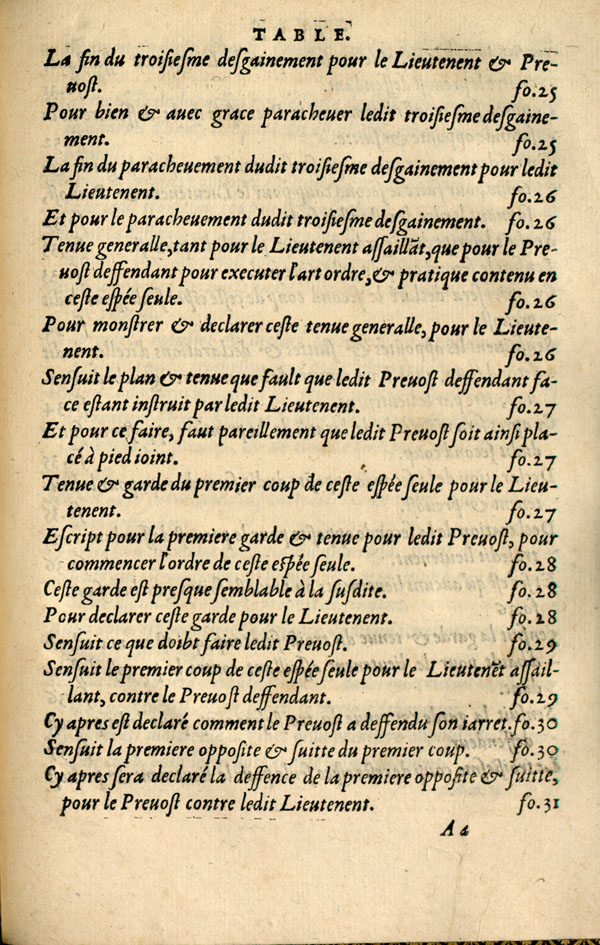 TABLE.
La fin du troisiesme desgainement pour le Lieutenent & Pre-
uost. fo.25
Pour bien & auec grace paracheuer ledit troisiesme desgaine-
ment. fo.25
La fin du paracheuement dudit troisiesme desgainement pour ledit
Lieutenent. fo.26
Et pour le paracheuement dudit troisiesme desgainement. fo.26
Tenue generalle, tant pour le Lieutenent assaillãt, que pour le Pre-
uost deffendant pour executer l'art ordre, & pratique contenu en
ceste espée seule. fo.26
Pour monstrer & declarer ceste tenue generalle, pour le Lieute-
nent. fo.26
Sensuit le plan & tenue que fault que ledit Preuost deffendant fa-
ce estant instruit par ledit Lieutenent. fo.27
Et pour ce faire, faut pareillement que ledit Preuost soit ainsi pla-
cé à pied ioint. fo.27
Tenue & garde du premier coup de ceste espée seule pour le Lieu-
tenent. fo.27
Escript pour la premiere garde & tenue pour ledit Preuost, pour
commencer l'ordre de ceste espée seule. fo.28
Ceste garde est presque semblable à la susdite. fo.28
Pour declarer ceste garde pour le Lieutenent. fo.28
Sensuit ce que doibt faire ledit Preuost. fo.29
Sensuit le premier coup de ceste espée seule pour le Lieutenẽt assail-
lant, contre le Preuost deffendant. fo.29
Cy apres est declaré comment le Preuost a deffendu son iarret. fo.30
Sensuit la premiere opposite & suitte du premier coup. fo.30
Cy apres sera declaré la deffence de la premiere opposite & suitte,
pour le Preuost contre ledit Lieutenent. fo.31
Aa